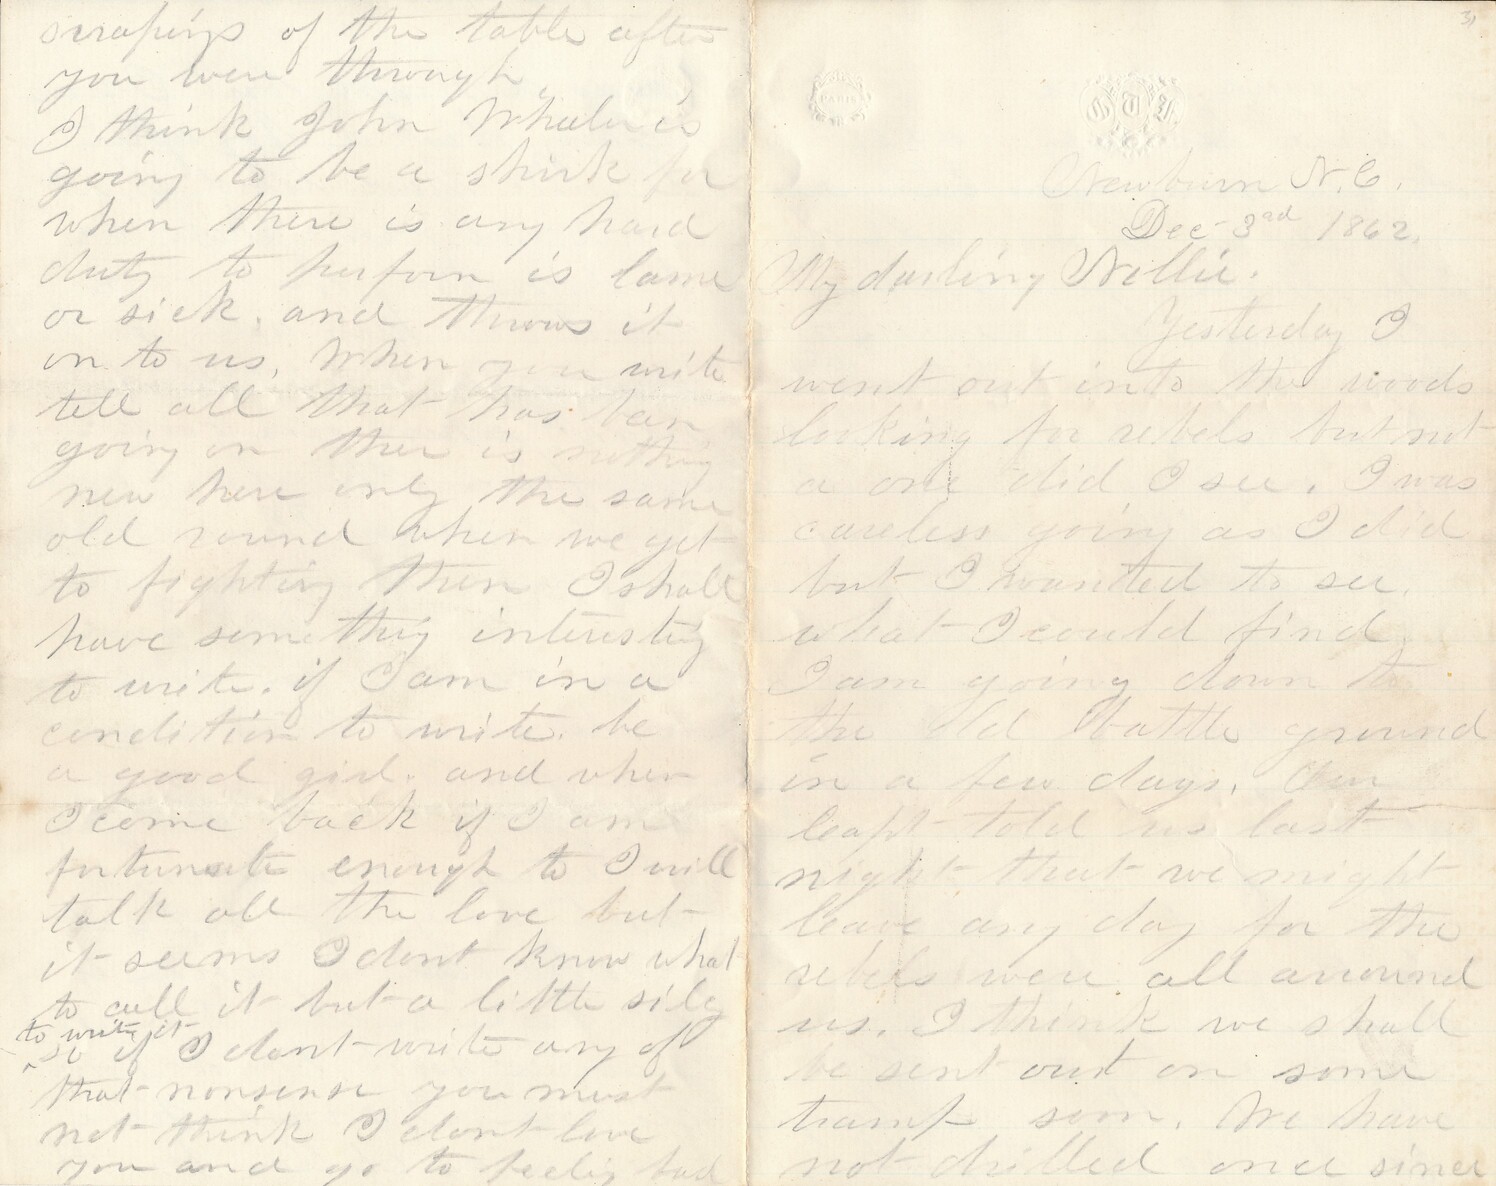 scrapings of the table after
you were through,
I think John Wheeler is
going to be a shirk for
when there is any hard
duty to perform is lame
or sick, and throws it
on to us, When you write
tell all that has ben
going on ther is nothing
new here only the same
old round when we get
to fighting then I shall
have something interesting
to write. if I am in a
condition to write. be
a good girl. and when
I come back if I am
fortunate enough to I will
talk all the love but
it seems I dont know what
to call it but a little sily
to write it
so if I dont write any of
that nonsense you must
not think I dont love
you and go to feelig bad
31
PARIS
Newburn N.C.
Dec 3rd 1862.
My darling Nellie.
Yesterday I
went out into the woods
looking for rebels but not
a one did I see. I was
careless going as I did
but I wanted to see
what I could find
I am going down to
the old battle ground
in a few days. Our
Capt told us last
night that we might
leave any day for the
rebels were all arround
us. I think we shall
be sent out on some
tramp soon. We have
not drilled once since